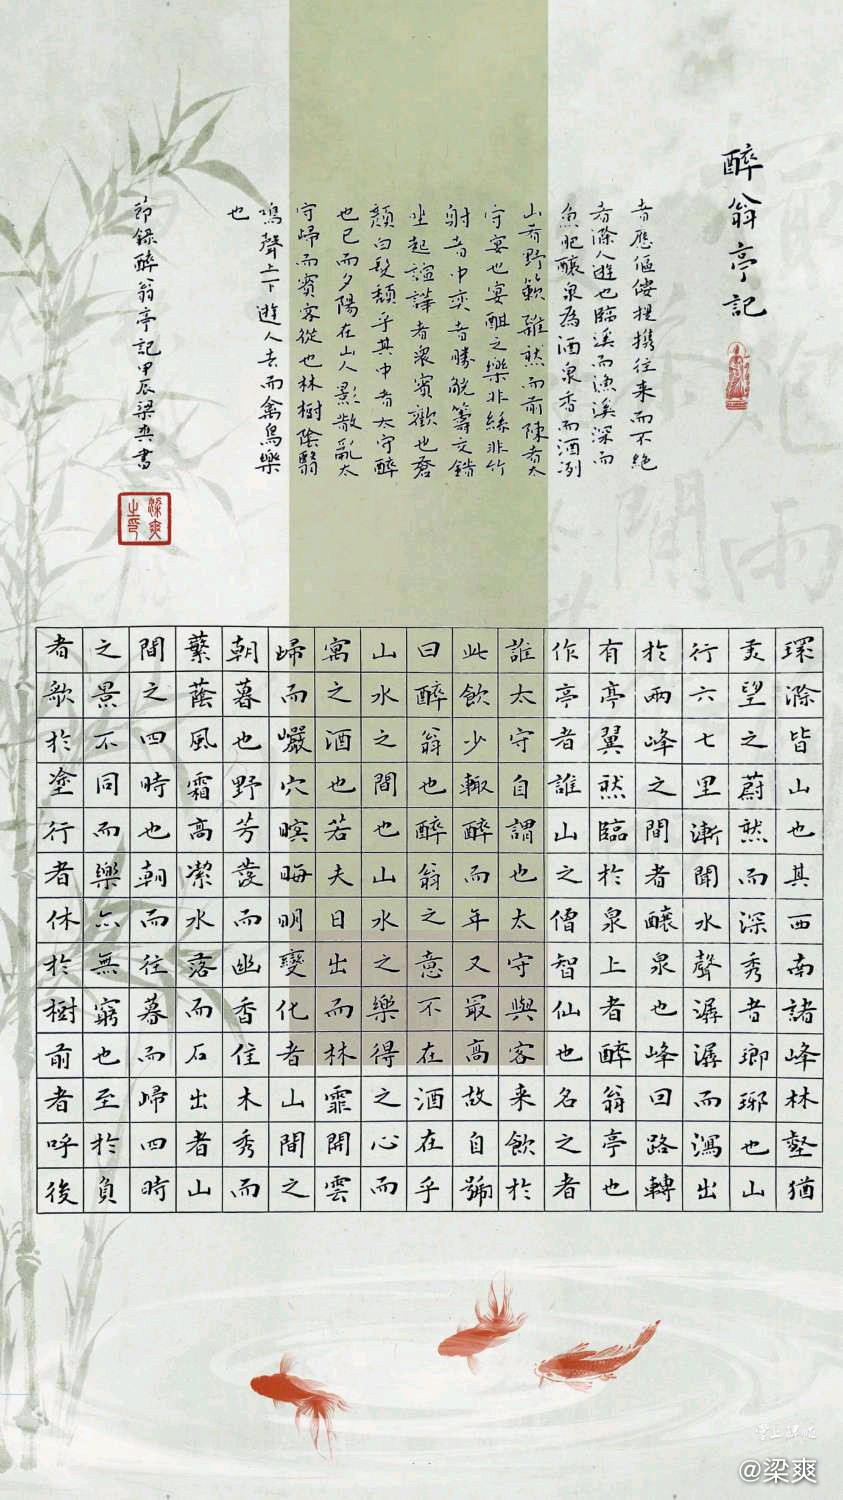 醉翁亭記
環滁皆山也其西南諸峰林壑猶
美望之蔚然而深秀者瑯琊也山
行六七里漸聞水聲潺潺而瀉出
於兩峰之間者釀泉也峰回路轉
有亭翼然臨於泉上者醉翁亭也
作亭者誰山之僧智仙也名之者
誰太守自謂也太守與客来飲於
此飲少輒醉而年又最高故自號
曰醉翁也醉翁之意不在酒在乎
山水之間也山水之樂得之心而
寓之酒也若夫日出而林霏開雲
歸而巖穴暝晦明變化者山間之
朝暮也野芳發而幽香佳木秀而
蘩蔭風霜高潔水落而石出者山
間之四時也朝而往暮而歸四時
之景不同而樂亦無窮也至於負
者歌於塗行者休於樹前者呼後
者應傴僂提攜往来而不絕
者滁人遊也臨溪而漁溪深而
魚肥釀泉為酒泉香而酒洌
山肴野蔌雜然而前陳者太
守宴也宴酣之樂非絲非竹
射者中奕者勝觥籌交錯
坐起諠譁者衆賓歡也蒼
顏白髮頹乎其中者太守醉
也已而夕陽在山人影散亂太
守歸而賓客從也林樹陰翳
鳴聲上下遊人去而禽鳥樂
也
節録醉翁亭記甲辰梁爽書
梁爽之印
@梁爽